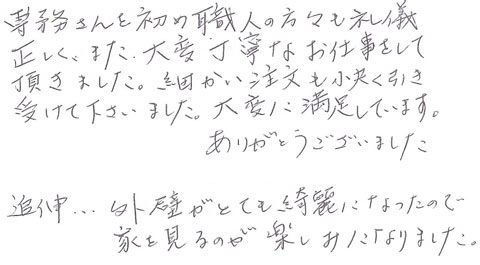 専務さんを初め職人の方々も礼儀
正しく、また、大変丁寧なお仕事をして
頂きました。細かい注文も快く引き
受けて下さいました。大変に満足しています。
ありがとうございました
追伸…外壁がとても綺麗になったので
家を見るのが楽しみになりました。